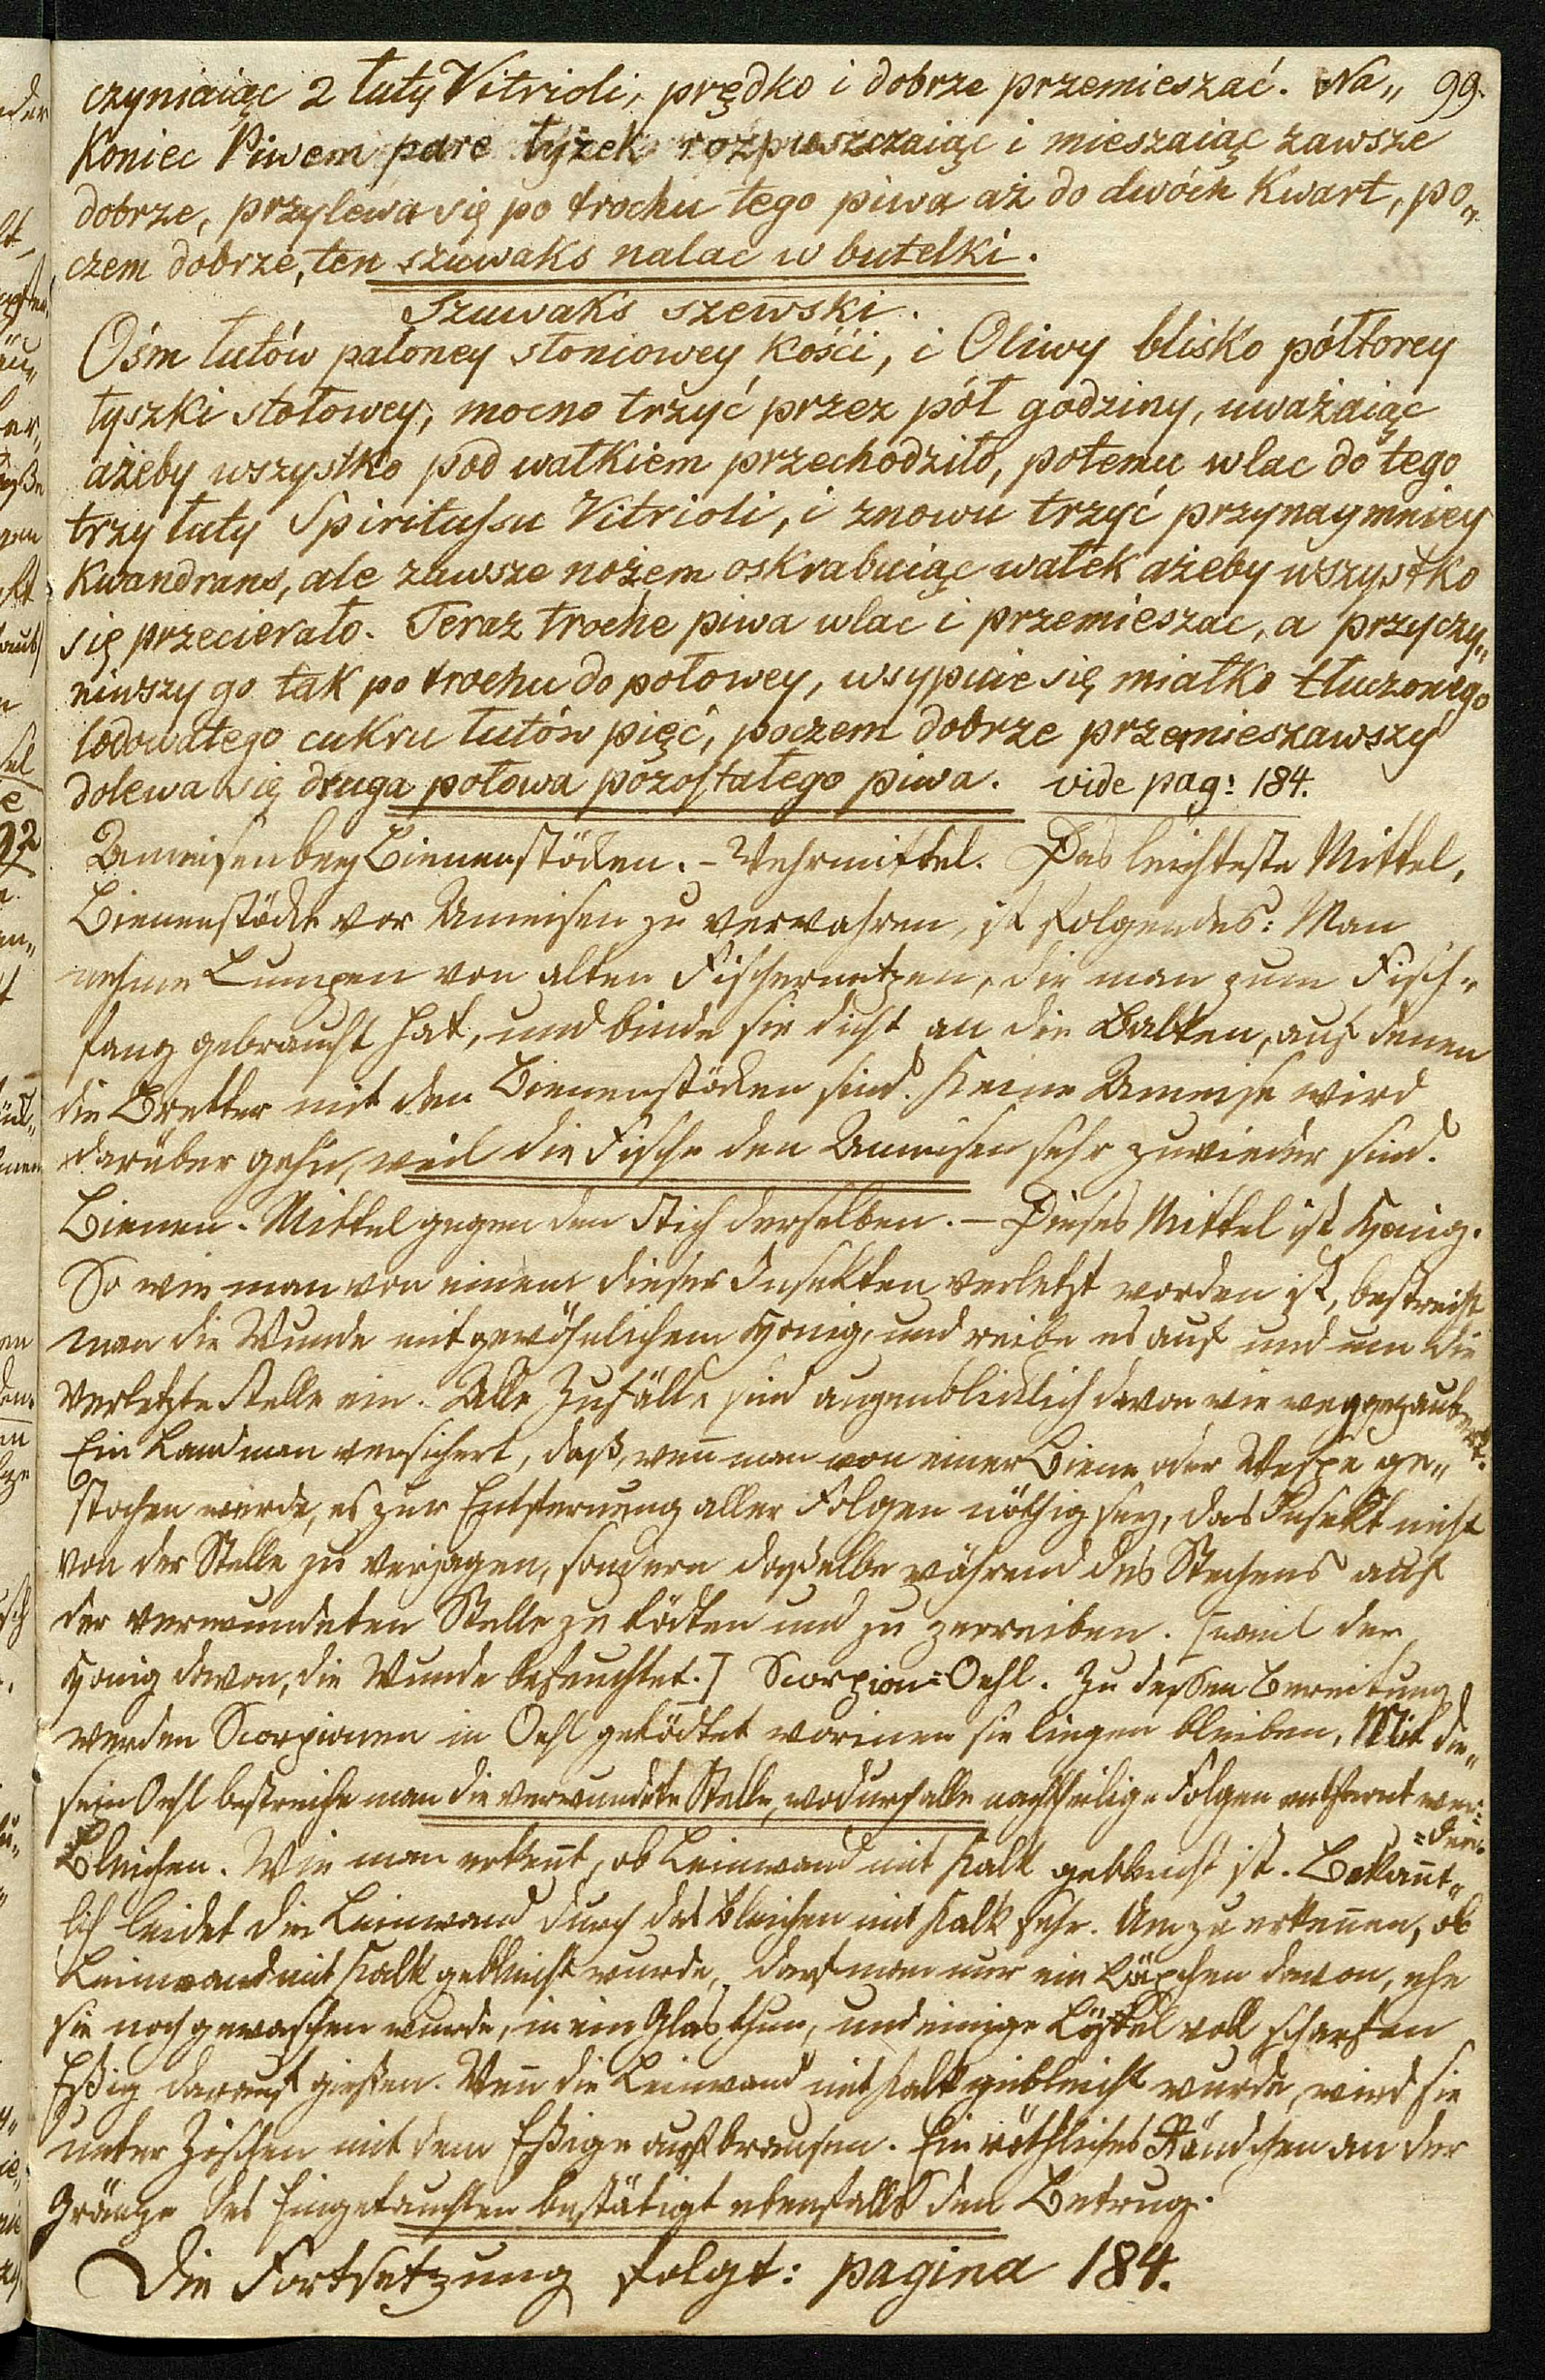 czyniaiąc 2 łuty Vitrioli, prędko i dobrze przemieszać. Na„ 99.
Koniec Piwem pare łyżek rozpuszczaiąc i mieszaiąc zawsze
dobrze, przylewa się po trochu tego piwa aż do dwóch Kwart, po„
czem dobrze, ten szuwaks nalac w butelki.
Szuwaks szewski.
Ośm łutów paloney słoniowey kości, i Oliwy blisko półtorey
łyszki stołowey, mocno trzyć przez pół godziny, uważaiąc
ażeby wszystko pod wałkiem przechodziło, potemu wlac do tego
trzy łuty Spiritussu Vitrioli, i znowu trzyć przynaymniey
Kwandrans, ale zawsze nożem oskrabuiąc wałek ażeby wszystko
się przecierało. Teraz troche piwa wlac i przemieszac, a przyczy„
niwszy go tak po trochu do połowey, wsypuie się miałko tłuczonego
lodowatego cukru łutów pięć, poczem dobrze przemieszawszy
dolewa się druga połowa pozostałego piwa. vide pag: 184.
Ameisen bey Bienenstöcken. – Wehrmittel. Das leichteste Mittel,
Bienenstöcke vor Ameisen zu verwahren, ist folgendes: Man
nehme Lumpen von alten Fischernetzen, die man zum Fisch„
fang gebraucht hat, und binde sie dicht an die Balken, auf denen
die Bretter mit den Bienenstöcken sind. Keine Ameise wird
darüber gehn, weil die Fische den Ameisen sehr zuwieder sind.
Bienen. Mittel gegen den Stich derselben. – Dieses Mittel ist Honig.
So wie man von einem dieser Insekten verletzt worden ist, bestreicht
man die Wunde mit gewöhnlichem Honig, und reibe es auf und um die
verletzte Stelle ein. Alle Zufälle sind augenblicklich davon wie weggezaubert.
Ein Landman versichert, daß, weñ man von einer Biene oder Wespe ge„
stochen werde, es zur Entfernung aller Folgen nöthig sey, das Insekt nicht
von der Stelle zu verjagen, sondern dasselbe während des Stechens auf
der verwundeten Stelle zu tödten und zu zerreiben. [weil der
Honig davon, die Wunde befeuchtet.] Scorpion=Oehl. Zu dessen Bereitung
werden Scorpionen in Oehl getödtet worinnen sie liegen bleiben. Mit die„
sem Oehl bestreiche man die verwundete Stelle, wodurch alle nachtheilige Folgen entfernt wer=
=den.
Bleichen. Wie man erkeñt, ob Leinwand mit Kalk gebleicht ist. Bekañt„
lich leidet die Leinwand durch das Bleichen mit Kalk sehr. Um zu erkeñen, ob
Leinwand mit Kalk gebleicht wurde, darf man nur ein Läpchen davon, ehe
sie noch gewaschen wurde, in ein Glas thun, und einige Löffel voll scharfen
Eßig darauf gießen. Weñ die Leinwand mit Kalk gebleicht wurde, wird sie
unter Zischen mit dem Eßige aufbrausen. Ein röthliches Rändchen an der
Gränze des Eingetauchten bestätigt ebenfalls den Betrug.
Die Fortsetzung folgt: pagina 184.